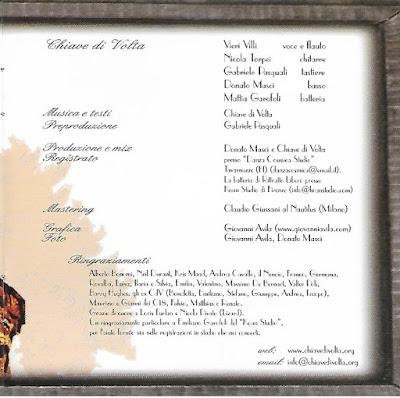 Chiave di Volta
Vieri Villi voce e flauto
Nicola Torpei chitarre
Gabriele Pasquali tastiere
Donato Masci basso
Mattia Garofoli batteria
Musica e testi Chiave di Volta
Preproduzione Gabriele Pasquali
Produzione e mix Donato Masci e Chiave di Volta
Registrato presso "Danza Cosmica Studio"
La batteria di Ritratto Libero presso
Mastering Claudio Giussani al Nautilus (Milano)
Grafica Giovanni Avila (www.giovanniavila.com)
Foto Giovanni Avila, Donato Masci
Ringraziamenti
Alberto Bonomi, Neil Durant, Kris Mood, Andrea Cavallo, il Nonno, Franco, Germana,
Rosalba, Luisa, Ilaria e Silvia, Emilia, Valentina, Massimo De Bernart, Valter Poli,
Barry Hughes, gli ex C-IV (Benedetta, Emiliano, Stefano, Giuseppe, Andrea, Iacopo),
Maurizio e Gianni dei C-18, Fabio, Matthias e Renato.
Grazie di cuore a Loris Furlan e
Un ringraziamento particolare a Emiliano Garofoli del "Kean Studio",
per l'aiuto fornito sia nelle registrazioni in studio che nei concerti.
web: www.chiavedivolta.org
email: info@chiavedivolta.org